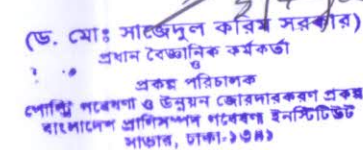 (ড. মোঃ সাজেদুল করিম সরকার)
প্রধান বৈজ্ঞানিক কর্মকর্তা
ও
প্রকল্প পরিচালক
পোল্ট্রি গবেষণা ও উন্নয়ন জোরদারকরণ প্রকল্প
বাংলাদেশ প্রাণিসম্পদ গবেষণা ইনস্টিটিউট
সাভার, ঢাকা-১৩৪১